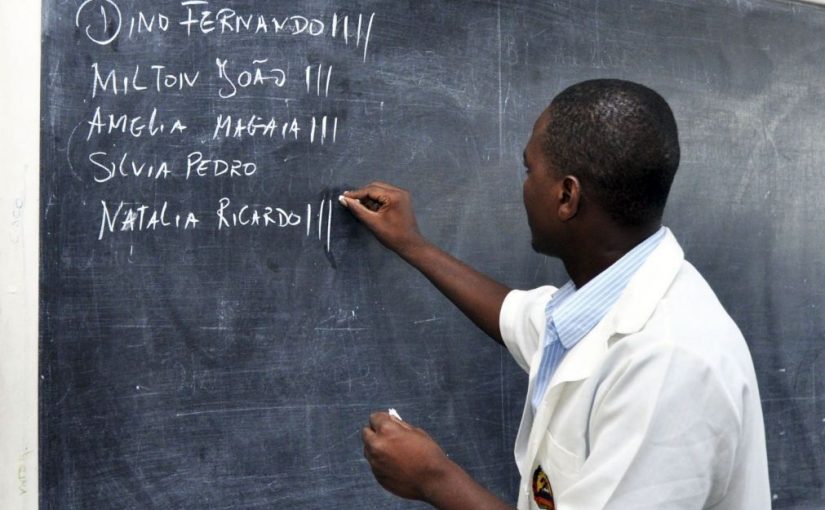 DINO FERNANDO ||||
MILTON JOÃO |||
AMELIA MAGAIA |||
SILVIA PEDRO
NATALIA RICARDO |||